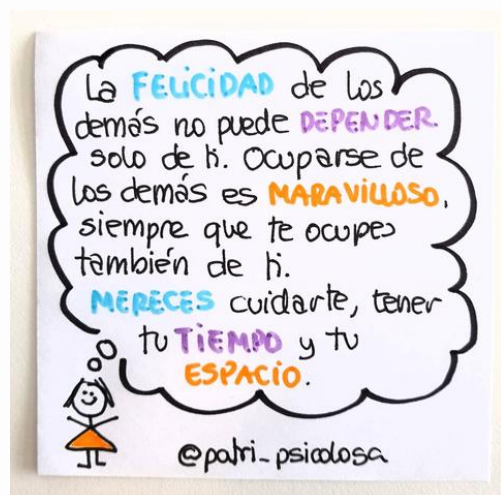 La FELICIDAD de los
demás no puede DEPENDER
solo de ti. Ocuparse de
los demás es MARAVILLOSO,
siempre que te ocupes
también de ti.
MERECES cuidarte, tener
tu TIEMPO y tu
ESPACIO.
@patri_psicologa